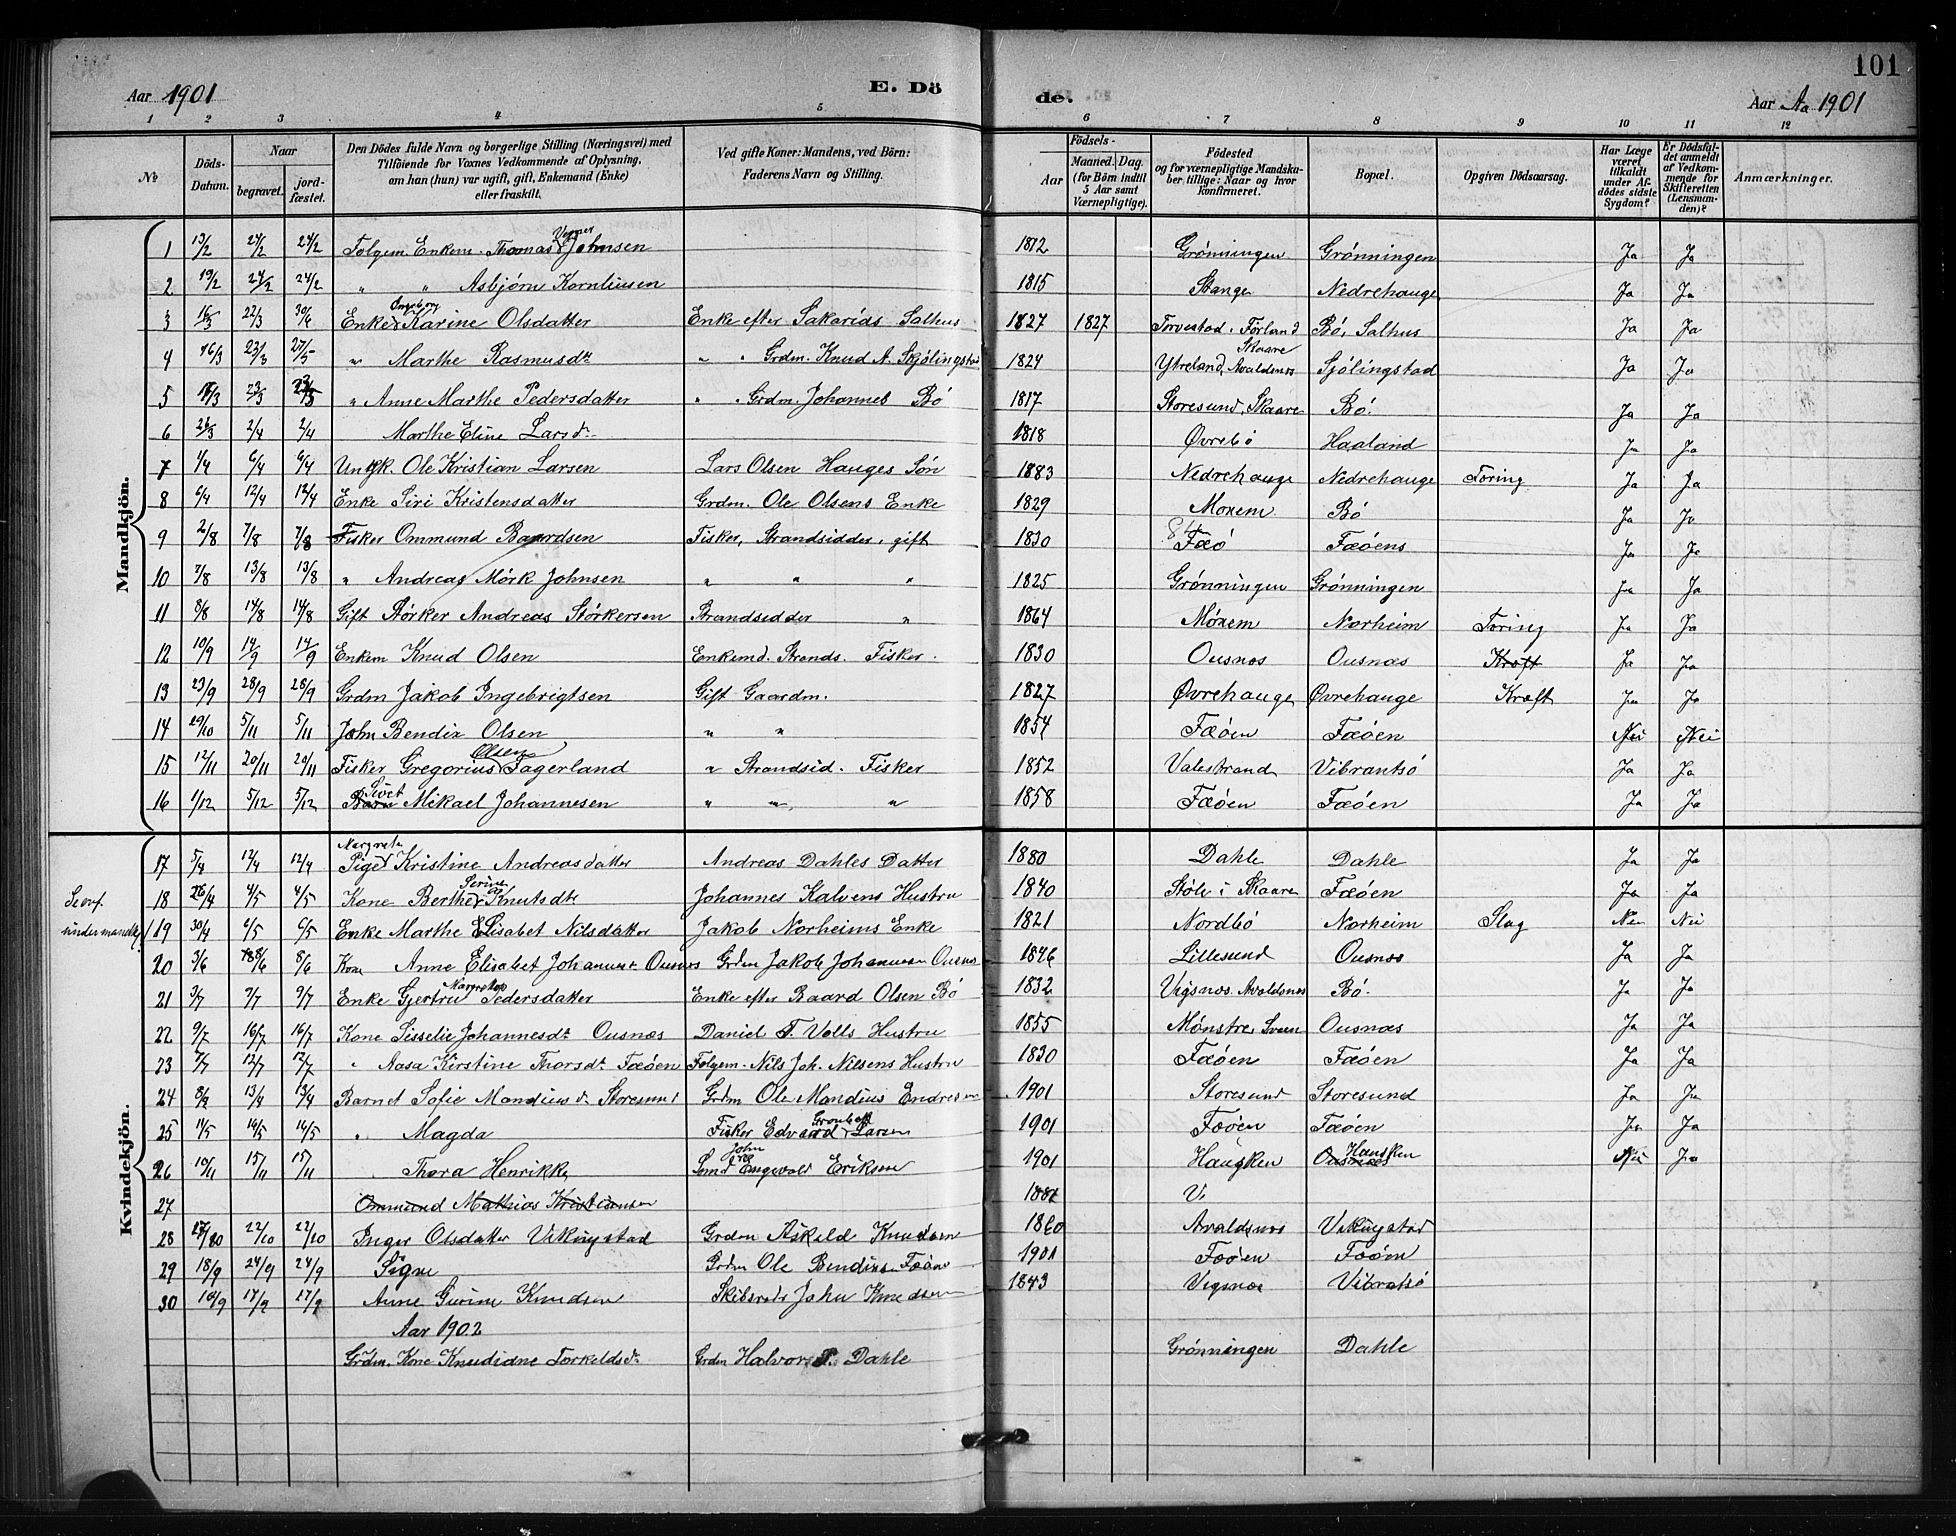 101
Aar 1901 E. Dö de. Aar Aa 1901
1 2 3 4 5 6 7 8 9 10 11 12
No
Döds-Datum.
Naar
begravet. jordfæstet.
Den Dödes fulde Navn og borgerlige Stilling (Næringsvei) med Tilföiende for Voxnes Vedkommende af Oplysning, om han (hun) var ugift, gift, Enkemand (Enke) eller fraskilt.
Ved gifte Koner: Mandens, ved Börn: Faderens Navn og Stilling.
Födsels-
Aar Maaned. Dag. (for Börn indtil 5 Aar samt Værnepligtige).
Födested og for værnepligtige Mandskaber tillige: Naar og hvor konfirmeret.
Bopæl.
Opgiven Dödsaarsag.
Har Læge været tilkaldt under Afdödes sidste Sygdom?
Er Dödsfaldet anmeldt af Vedkommende for Skifteretten (Lensmanden)?
Anmærkninger.
Mandkjön.
1 13/2 24/2 24/2 Folgem. Enkem. Thomas Vegner Johnsen 1812 Grønningen Grønningen Ja Ja
2 19/2 24/2 24/2 " " Asbjørn Kornliusen 1815 Stange Nedrehauge Ja Ja
3 16/3 22/3 30/4 Enke Ingeborg Karine Olsdatter Enke efter Sakarias Salhus 1827 1827 Torvestad, Førland Bö, Salhus Ja Ja
4 16/3 23/3 27/5 " Marthe Rasmusdt " " Grdm. Knud A. Skjølingstad 1824 Ytreland, Avaldsnes Skaare Sjólingstad Ja Ja
5 17/3 23/3 23/3 " Anne Marthe Pedersdatter " " Grdm. Johannes Bö 1817 Storesund, Skaare Bö. Ja Ja
6 26/3 2/4 2/4 Marthe Eline Larsdt 1818 Øvrebö Haaland Ja Ja
7 1/4 6/4 6/4 Ungk. Ole Kristian Larsen Lars Olsen Hauges Søn 1883 Nedrehauge Nedrehauge Tæring Ja Ja
8 6/4 12/4 12/4 Enke Siri Kristensdatter Grdm. Ole Olsens Enke 1829 Moxem Bö Ja Ja
9 2/8 7/8 7/8 Fisker Ommund Baardsen Fisker, Strandsidder, gift 1830 Fæö Fæöens Ja Ja
10 7/8 13/8 13/8 " Andreas Mørk Johnsen " " " 1825 Grønningen Grønningen Ja Ja
11 8/8 14/8 14/8 Gift Størker Andreas Størkersen Strandsidder " 1864 Móxem Norheim Tæring Ja Ja
12 10/9 14/9 14/9 Enkem Knud Olsen Enkemd. Strands. Fisker 1830 Ousnæs Ousnæs Kræft Ja Ja
13 23/9 28/9 28/9 Grdm Jakob Ingebrigtsen Gift Gaardm. 1827 Øvrehauge Øvrehauge Kræft Ja Ja
14 29/10 5/11 5/11 John Bendix Olsen " " 1854 Fæöen Fæöen Nei Nei
15 12/11 20/11 20/11 Fisker Gregorius Olsen Fagerland " Strandsid. Fisker 1852 Valestrand Vibrantsö Ja Ja
16 1/12 5/12 5/12 Barn Sivert Mikael Johannesen " " " 1858 Fæöen Fæöen Ja Ja
Kvindekjön.
17 5/4 12/4 12/4 Pige Margrete Kristine Andreasdatter Andreas Dahles Datter 1880 Dahle Dahle Ja Ja
18 26/4 4/5 4/5 Kone Berthe Serine Knutsdt Johannes Kalvens Hustru 1840 Støle i Skaare Fæöen Ja Ja
19 30/4 6/5 6/5 Enke Marthe Elisabet Nilsdatter Jakob Norheims Enke 1821 Nordbö Norheim Slag Nei Nei
20 3/6 8/6 8/6 Kone Anne Elisabet Johannesdt Ousnes Grdm Jakob Johannesen Ousnes 1846 Lillesund Ousnes Ja Ja
21 3/7 9/7 9/7 Enke Gjertru Margrete Pedersdatter Enke efter Baard Olsen Bö 1832 Vigsnes Avaldsnes Bö. Ja Ja
22 9/7 16/7 16/7 Kone Sisselie Johannesdt Ousnæs Daniel T. Volls Hustru 1855 Mónstre, Sveen Ousnæs Ja Ja
23 7/7 12/7 12/7 " Aasa Kirstine Thorsdt Fæöen Folgem. Nils Joh. Nilsens Hustru 1830 Fæöen Fæöen Ja Ja
24 8/4 13/4 13/4 Barnet Sofie Mandiusd. Storesund Grdm Ole Mandius Endresen 1901 Storesund Storesund Ja Ja
25 11/5 16/5 16/5 " Magda Fisker Edvard Larsen 1901 Fæöen Fæöen Ja Ja
26 10/11 15/11 15/11 Thora Henrikke Smd John Engevald Eriksen 1901 Hausken Ousnæs Hausken Nei Ja
27 Ommund Mathias Kristiansen Vi
28 17/10 22/10 22/10 Inger Olsdatter Vikingstad Grdm Askild Knudsen 1860 Avaldsnes Vikingstad
29 18/9 24/9 24/9 Signe Grdm Ole Bendixsen Fæöen 1901 Fæöen Fæöen
30 18/9 17/9 17/9 Anne Gurine Knudsen Skibsreder John Knudsen 1843 Vigsnes Vibratsö
Aar 1902
Grdm. Kone Knudiane Torkeldsdt Grdm Halvor T. Dahle Grønningen Dahle